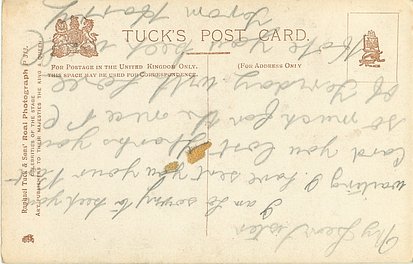 TUCK'S POST CARD.
FOR POSTAGE IN THE UNITED KINGDOM ONLY.
THIS SPACE MAY BE USED FOR CORRESPONDENCE.
(FOR ADDRESS ONLY
Raphael Tuck & Sons' Real Photograph P
CELEBRITIES OF THE STAGE
ART PUBLISHERS TO THEIR MAJESTIES THE KING & QUEEN
My Dear Sister
I am so sorry to keep you
waiting I have sent you your
Card you lost Thanks you
so much for the P C
of Torquay will
you best
From Harry